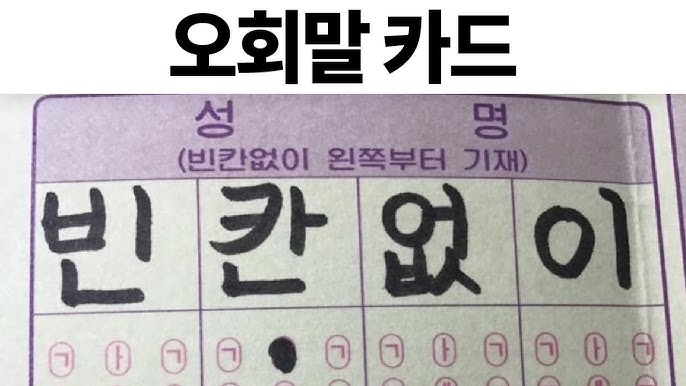 오회말 카드
성 명
(빈칸없이 왼쪽부터 기재)
빈 칸 없 이
ㄱ ㅏ ㄱ ㄱ ㄱ ㄱ ㅏ ㄱ ㄱ ㅏ ㄱ